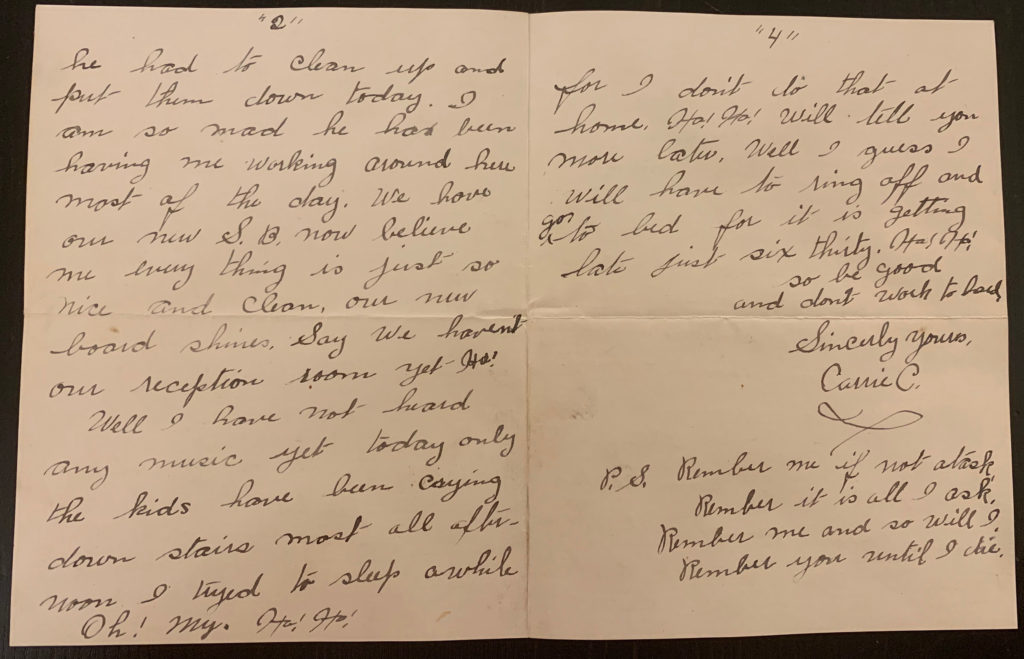 "2"
he had to clean up and
put them down today. I
am so mad he has been
having me working around here
most of the day. We have
our new S. B. now believe
me every thing is just so
nice and clean, our new
board shines. Say We havent
our reception room yet Ha!
Well I have not heard
any music yet today only
the kids have been crying
down stairs most all after-
noon I tryed to sleep awhile
Oh! My. Ha! Ha!
"4"
for I don't do that at
home. Ha! Ha! Will tell you
more later. Well I guess I
will have to ring off and
go to bed for it is getting
late just six thirty. Ha! Ha!
so be good
and don't work to hard
Sincerly yours,
Carrie C.
P. S. Rember me if not a task
Rember it is all I ask.
Rember me and so will I
Rember you until I die.